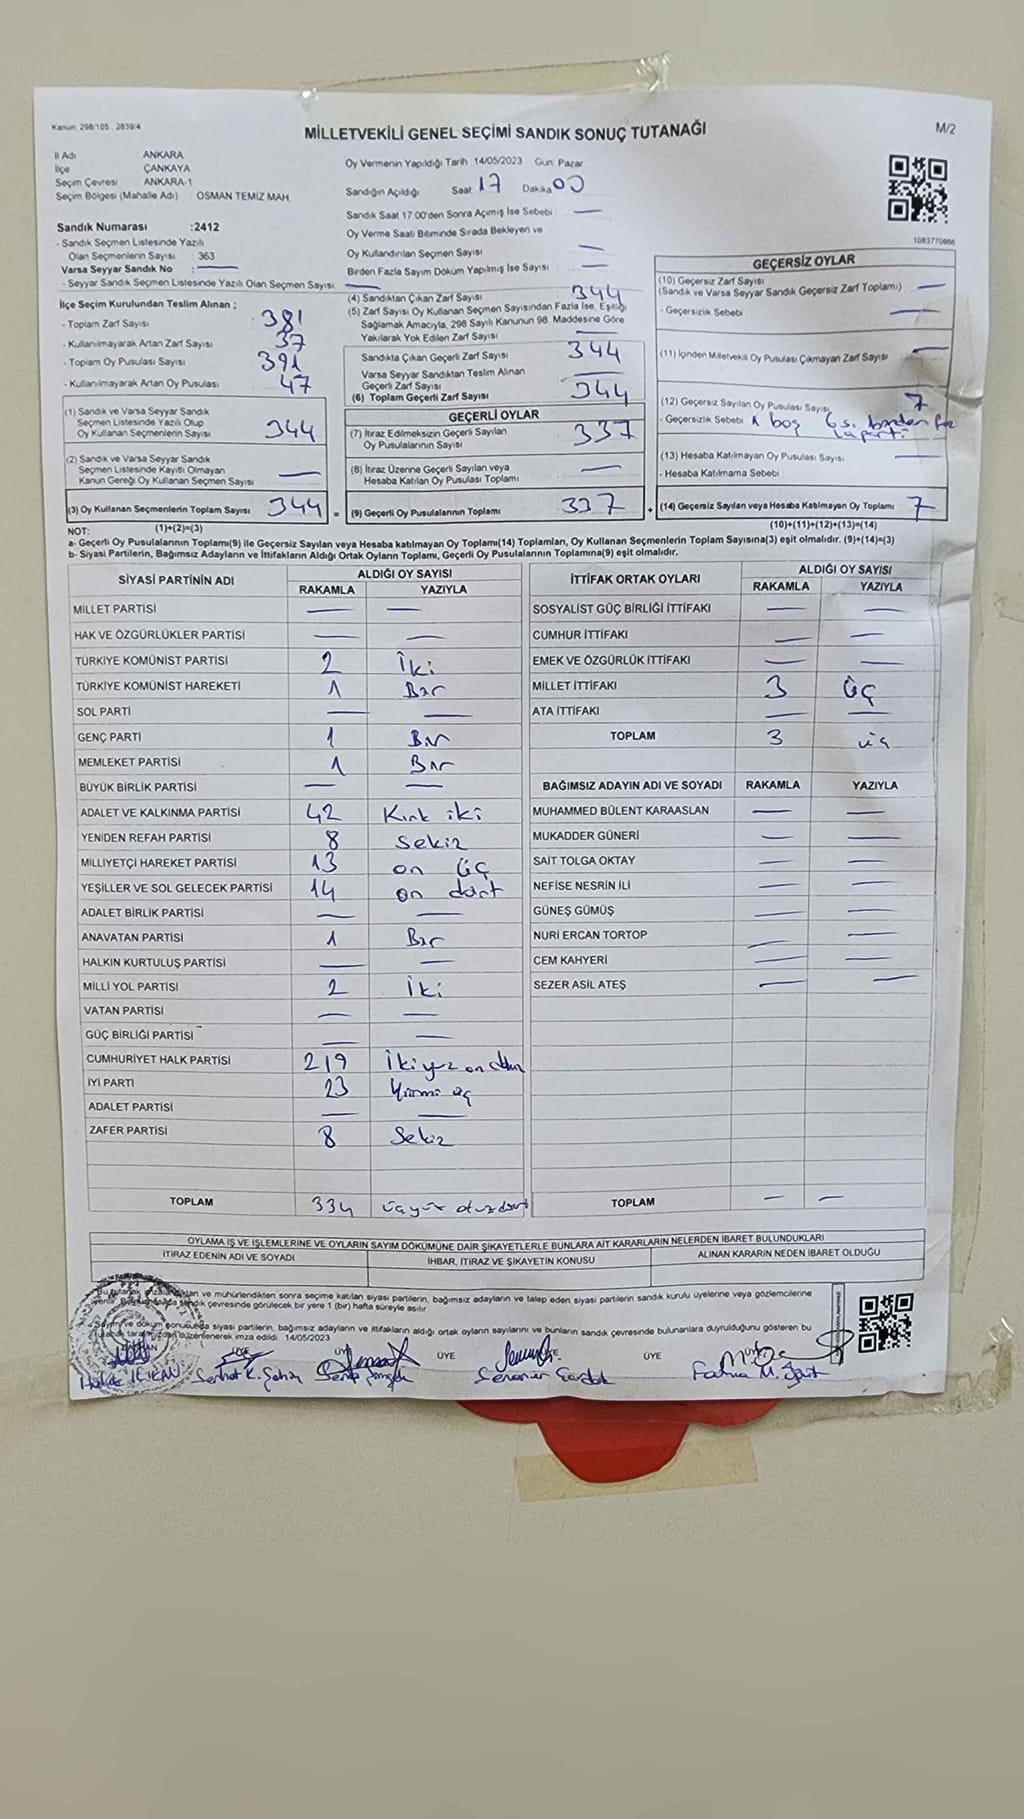 Kanun: 298/105 2839/4
MİLLETVEKİLİ GENEL SEÇİMİ SANDIK SONUÇ TUTANAĞI
M/2
İl Adı ANKARA
İlçe ÇANKAYA
Seçim Çevresi ANKARA-1
Seçim Bölgesi (Mahalle Adı) : OSMAN TEMİZ MAH.
Oy Vermenin Yapıldığı Tarih : 14/05/2023 Gün: Pazar
Sandığın Açıldığı Saat 17 Dakika 00
Sandık Saat 17:00'den Sonra Açımış İse Sebebi : —
Oy Verme Saati Bitiminde Sırada Bekleyen ve
Oy Kullandırılan Seçmen Sayısı —
Birden Fazla Sayım Döküm Yapılmış İse Sayısı —
1083770666
Sandık Numarası :2412
- Sandık Seçmen Listesinde Yazılı
Olan Seçmenlerin Sayısı : 363
Varsa Seyyar Sandık No : —
- Seyyar Sandık Seçmen Listesinde Yazılı Olan Seçmen Sayısı —
İlçe Seçim Kurulundan Teslim Alınan ;
- Toplam Zarf Sayısı 381
- Kullanılmayarak Artan Zarf Sayısı 37
- Toplam Oy Pusulası Sayısı 391
- Kullanılmayarak Artan Oy Pusulası 47
(1) Sandık ve Varsa Seyyar Sandık
Seçmen Listesinde Yazılı Olup
Oy Kullanan Seçmenlerin Sayısı 344
(2) Sandık ve Varsa Seyyar Sandık
Seçmen Listesinde Kayıtlı Olmayan
Kanun Gereği Oy Kullanan Seçmen Sayısı —
(3) Oy Kullanan Seçmenlerin Toplam Sayısı 344 =
(1)+(2)=(3)
(4) Sandıktan Çıkan Zarf Sayısı 344
(5) Zarf Sayısı Oy Kullanan Seçmen Sayısından Fazla İse, Eşitliği
Sağlamak Amacıyla, 298 Sayılı Kanunun 98. Maddesine Göre
Yakılarak Yok Edilen Zarf Sayısı —
Sandıkta Çıkan Geçerli Zarf Sayısı 344
Varsa Seyyar Sandıktan Teslim Alınan
Geçerli Zarf Sayısı —
(6) Toplam Geçerli Zarf Sayısı 344
GEÇERLİ OYLAR
(7) İtiraz Edilmeksizin Geçerli Sayılan
Oy Pusulalarının Sayısı 337
(8) İtiraz Üzerine Geçerli Sayılan veya
Hesaba Katılan Oy Pusulası Toplamı —
(9) Geçerli Oy Pusulalarının Toplamı 337 +
GEÇERSİZ OYLAR
(10) Geçersiz Zarf Sayısı
(Sandık ve Varsa Seyyar Sandık Geçersiz Zarf Toplamı) : —
- Geçersizlik Sebebi —
(11) İçinden Milletvekili Oy Pusulası Çıkmayan Zarf Sayısı —
(12) Geçersiz Sayılan Oy Pusulası Sayısı 7
- Geçersizlik Sebebi 1 boş 6 sı birden faz
la parti
(13) Hesaba Katılmayan Oy Pusulası Sayısı —
- Hesaba Katılmama Sebebi
(14) Geçersiz Sayılan veya Hesaba Katılmayan Oy Toplamı 7
(10)+(11)+(12)+(13)=(14)
NOT:
a- Geçerli Oy Pusulalarının Toplamı(9) ile Geçersiz Sayılan veya Hesaba katılmayan Oy Toplamı(14) Toplamları, Oy Kullanan Seçmenlerin Toplam Sayısına(3) eşit olmalıdır. (9)+(14)=(3)
b- Siyasi Partilerin, Bağımsız Adayların ve İttifakların Aldığı Ortak Oyların Toplamı, Geçerli Oy Pusulalarının Toplamına(9) eşit olmalıdır.
SİYASİ PARTİNİN ADI ALDIĞI OY SAYISI
RAKAMLA YAZIYLA
MİLLET PARTİSİ — —
HAK VE ÖZGÜRLÜKLER PARTİSİ — —
TÜRKİYE KOMÜNİST PARTİSİ 2 İki
TÜRKİYE KOMÜNİST HAREKETİ 1 Bir
SOL PARTİ — —
GENÇ PARTİ 1 Bir
MEMLEKET PARTİSİ 1 Bir
BÜYÜK BİRLİK PARTİSİ — —
ADALET VE KALKINMA PARTİSİ 42 Kırk iki
YENİDEN REFAH PARTİSİ 8 Sekiz
MİLLİYETÇİ HAREKET PARTİSİ 13 on üç
YEŞİLLER VE SOL GELECEK PARTİSİ 14 on dört
ADALET BİRLİK PARTİSİ — —
ANAVATAN PARTİSİ 1 Bir
HALKIN KURTULUŞ PARTİSİ — —
MİLLİ YOL PARTİSİ 2 İki
VATAN PARTİSİ — —
GÜÇ BİRLİĞİ PARTİSİ — —
CUMHURİYET HALK PARTİSİ 219 İkiyüz on
İYİ PARTİ 23 Yirmi üç
ADALET PARTİSİ — —
ZAFER PARTİSİ 8 Sekiz
TOPLAM 334 üçyüz otuzdört
İTTİFAK ORTAK OYLARI ALDIĞI OY SAYISI
RAKAMLA YAZIYLA
SOSYALİST GÜÇ BİRLİĞİ İTTİFAKI — —
CUMHUR İTTİFAKI — —
EMEK VE ÖZGÜRLÜK İTTİFAKI — —
MİLLET İTTİFAKI 3 Üç
ATA İTTİFAKI — —
TOPLAM 3 üç
BAĞIMSIZ ADAYIN ADI VE SOYADI RAKAMLA YAZIYLA
MUHAMMED BÜLENT KARAASLAN — —
MUKADDER GÜNERİ — —
SAİT TOLGA OKTAY — —
NEFİSE NESRİN İLİ — —
GÜNEŞ GÜMÜŞ — —
NURİ ERCAN TORTOP — —
CEM KAHYERİ — —
SEZER ASİL ATEŞ — —
TOPLAM — —
OYLAMA İŞ VE İŞLEMLERİNE VE OYLARIN SAYIM DÖKÜMÜNE DAİR ŞİKAYETLERLE BUNLARA AİT KARARLARIN NELERDEN İBARET BULUNDUKLARI
İTİRAZ EDENİN ADI VE SOYADI İHBAR, İTİRAZ VE ŞİKAYETİN KONUSU ALINAN KARARIN NEDEN İBARET OLDUĞU
Bu tutanak ve mühürlendikten sonra seçime katılan siyasi partilerin, bağımsız adayların ve talep eden siyasi partilerin sandık kurulu üyelerine veya gözlemcilerine
sandık çevresinde görülecek bir yere 1 (bir) hafta süreyle asılır
Sayım ve döküm sonucunda siyasi partilerin, bağımsız adayların ve ittifakların aldığı ortak oyların sayılarını ve bunların sandık çevresinde bulunanlara duyrulduğunu gösteren bu
tutanak tarafımızdan düzenlenerek imza edildi. 14/05/2023
ÜYE ÜYE ÜYE
Serhat K. Şahin Fatma M.